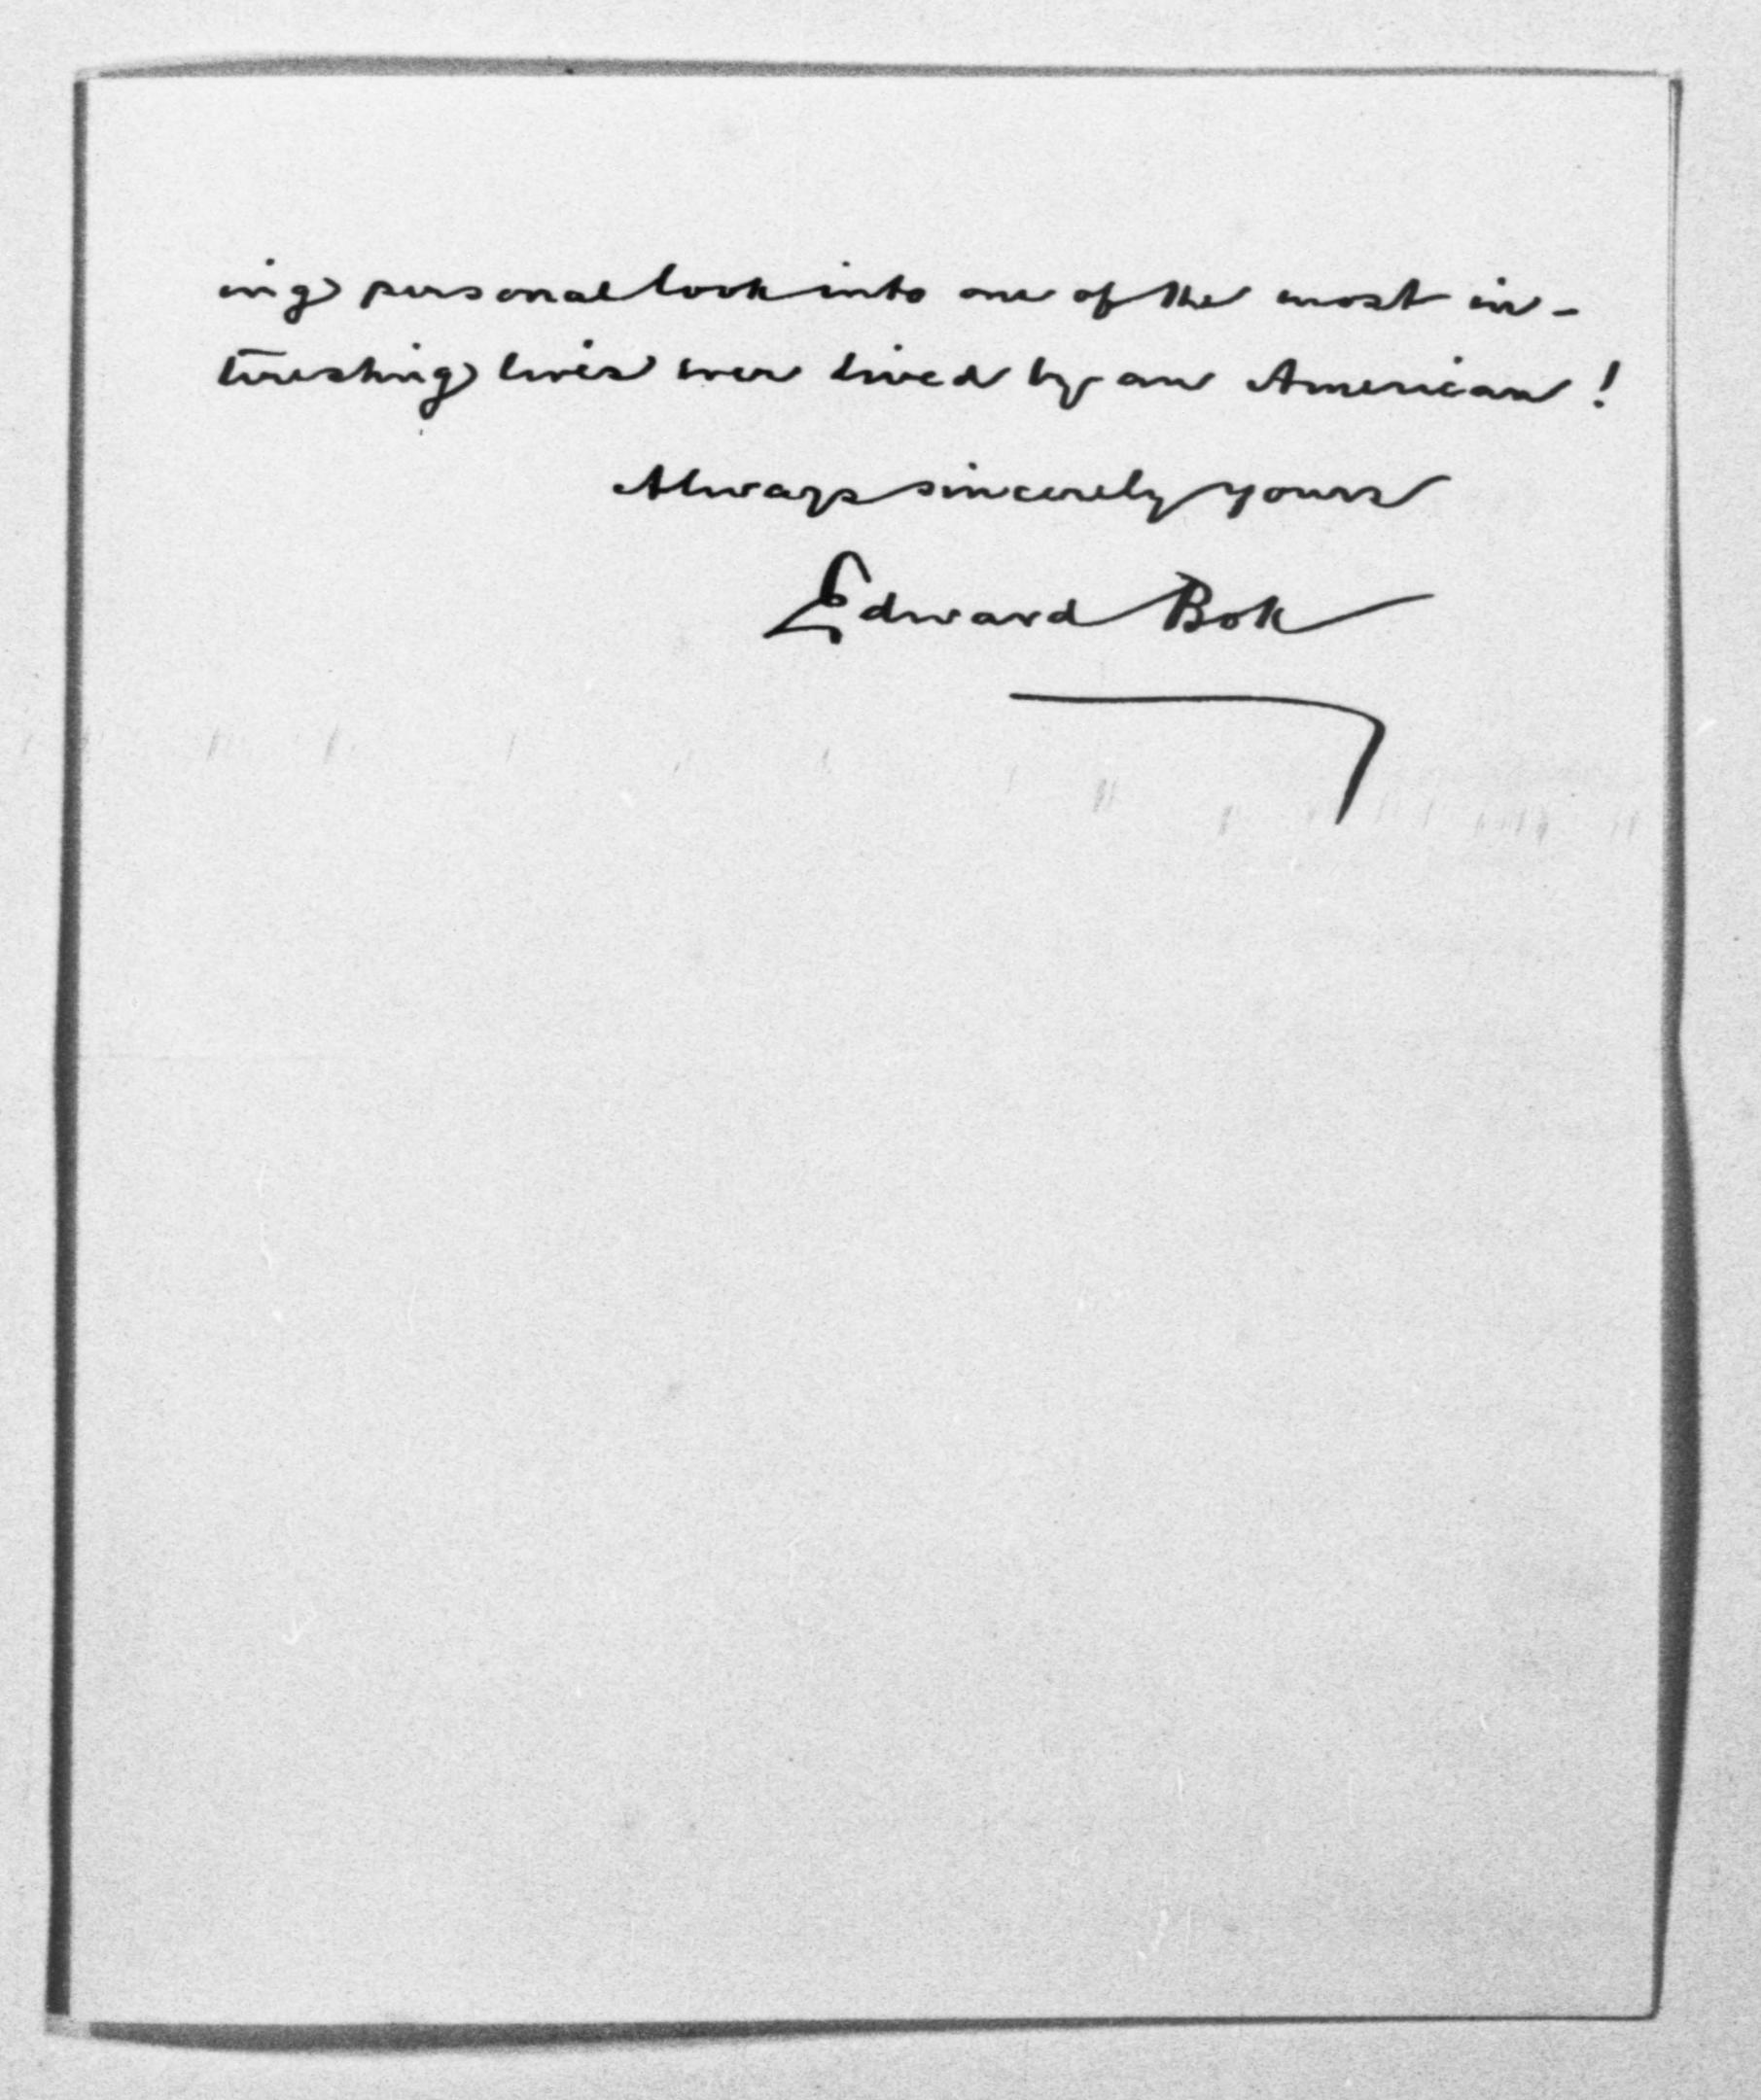 ing personal look into one of the most in-
teresting lives ever lived by an American!
Always sincerely yours
Edward Bok